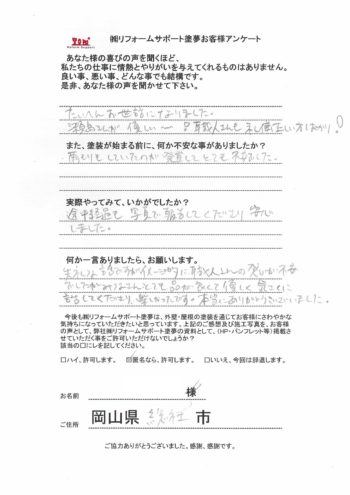 Tom
Reform Support
㈱リフォームサポート塗夢お客様アンケート
あなた様の喜びの声を聞くほど、
私たちの仕事に情熱とやりがいを与えてくれるものはありません。
良い事、悪い事、どんな事でも結構です。
是非、あなた様の声を聞かせて下さい。
たいへんお世話になりました。
さんが 優しい〜 職人さんも 礼儀正しい方ばかり!
また、塗装が始まる前に、何か不安な事がありましたか?
雨もりもしていたのが 発覚して とても 不安でした。
実際やってみて、いかがでしたか?
途中経過も 写真で 報告してくださり 安心
しました。
何か一言ありましたら、お願いします。
失礼な話ですが イメージ的に 職人さんの 不安
でしたが みなさん とても 品が良くて 優しく 気さくに
話してくださり 良かったです。本当にありがとうございました。
今後も㈱リフォームサポート塗夢は、外壁・屋根の塗装を通じてお客様にさわやかな
気持ちになっていただきたいと思っています。上記のご感想及び施工写真を、お客様
の声として、弊社㈱リフォームサポート塗夢の資料として、(HP・パンフレット等)掲載さ
せていただく事をご許可いただけないでしょうか?
該当の□にレを記してください。
□ハイ、許可します。 ☑匿名なら、許可します。 □いいえ、今回は辞退します。
お名前 様
ご住所 岡山県 総社 市
ご協力ありがとうございました、感謝、感謝です。